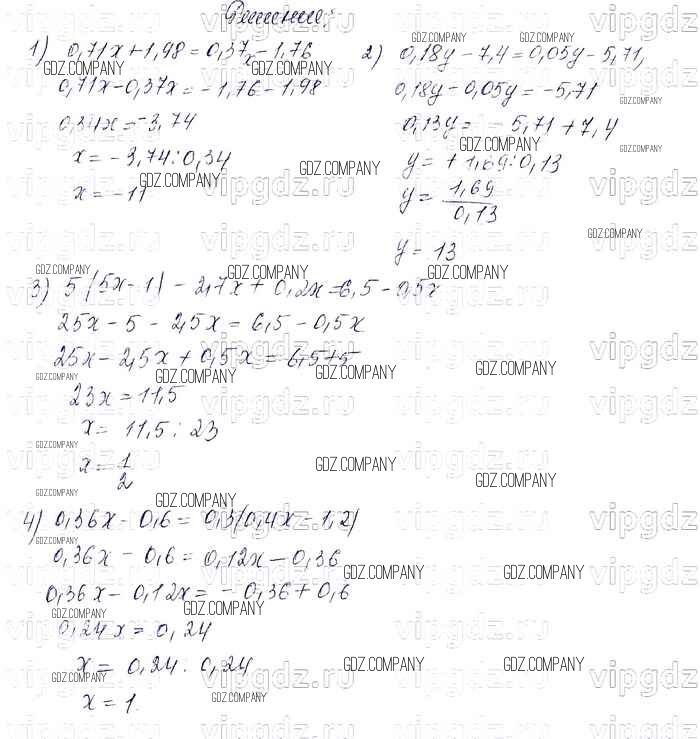 Решение:
1) 0,71x + 1,98 = 0,37x - 1,76
0,71x - 0,37x = - 1,76 - 1,98
0,34x = -3,74
x = - 3,74 : 0,34
x = - 11
2) 0,18y - 7,4 = 0,05y - 5,71,
0,18y - 0,05y = - 5,71
0,13y = - 5,71 + 7,4
y = + 1,69 : 0,13
y = 1,69/0,13
y = 13
3) 5(5x - 1) - 2,7x + 0,2x = 6,5 - 0,5x
25x - 5 - 2,5x = 6,5 - 0,5x
25x - 2,5x + 0,5x = 6,5 + 5
23x = 11,5
x = 11,5 : 23
x = 1/2
4) 0,36x - 0,6 = 0,3(0,4x - 1,2)
0,36x - 0,6 = 0,12x - 0,36
0,36x - 0,12x = - 0,36 + 0,6
0,24x = 0,24
x = 0,24 : 0,24
x = 1.
GDZ.COMPANY
vipgdz.ru